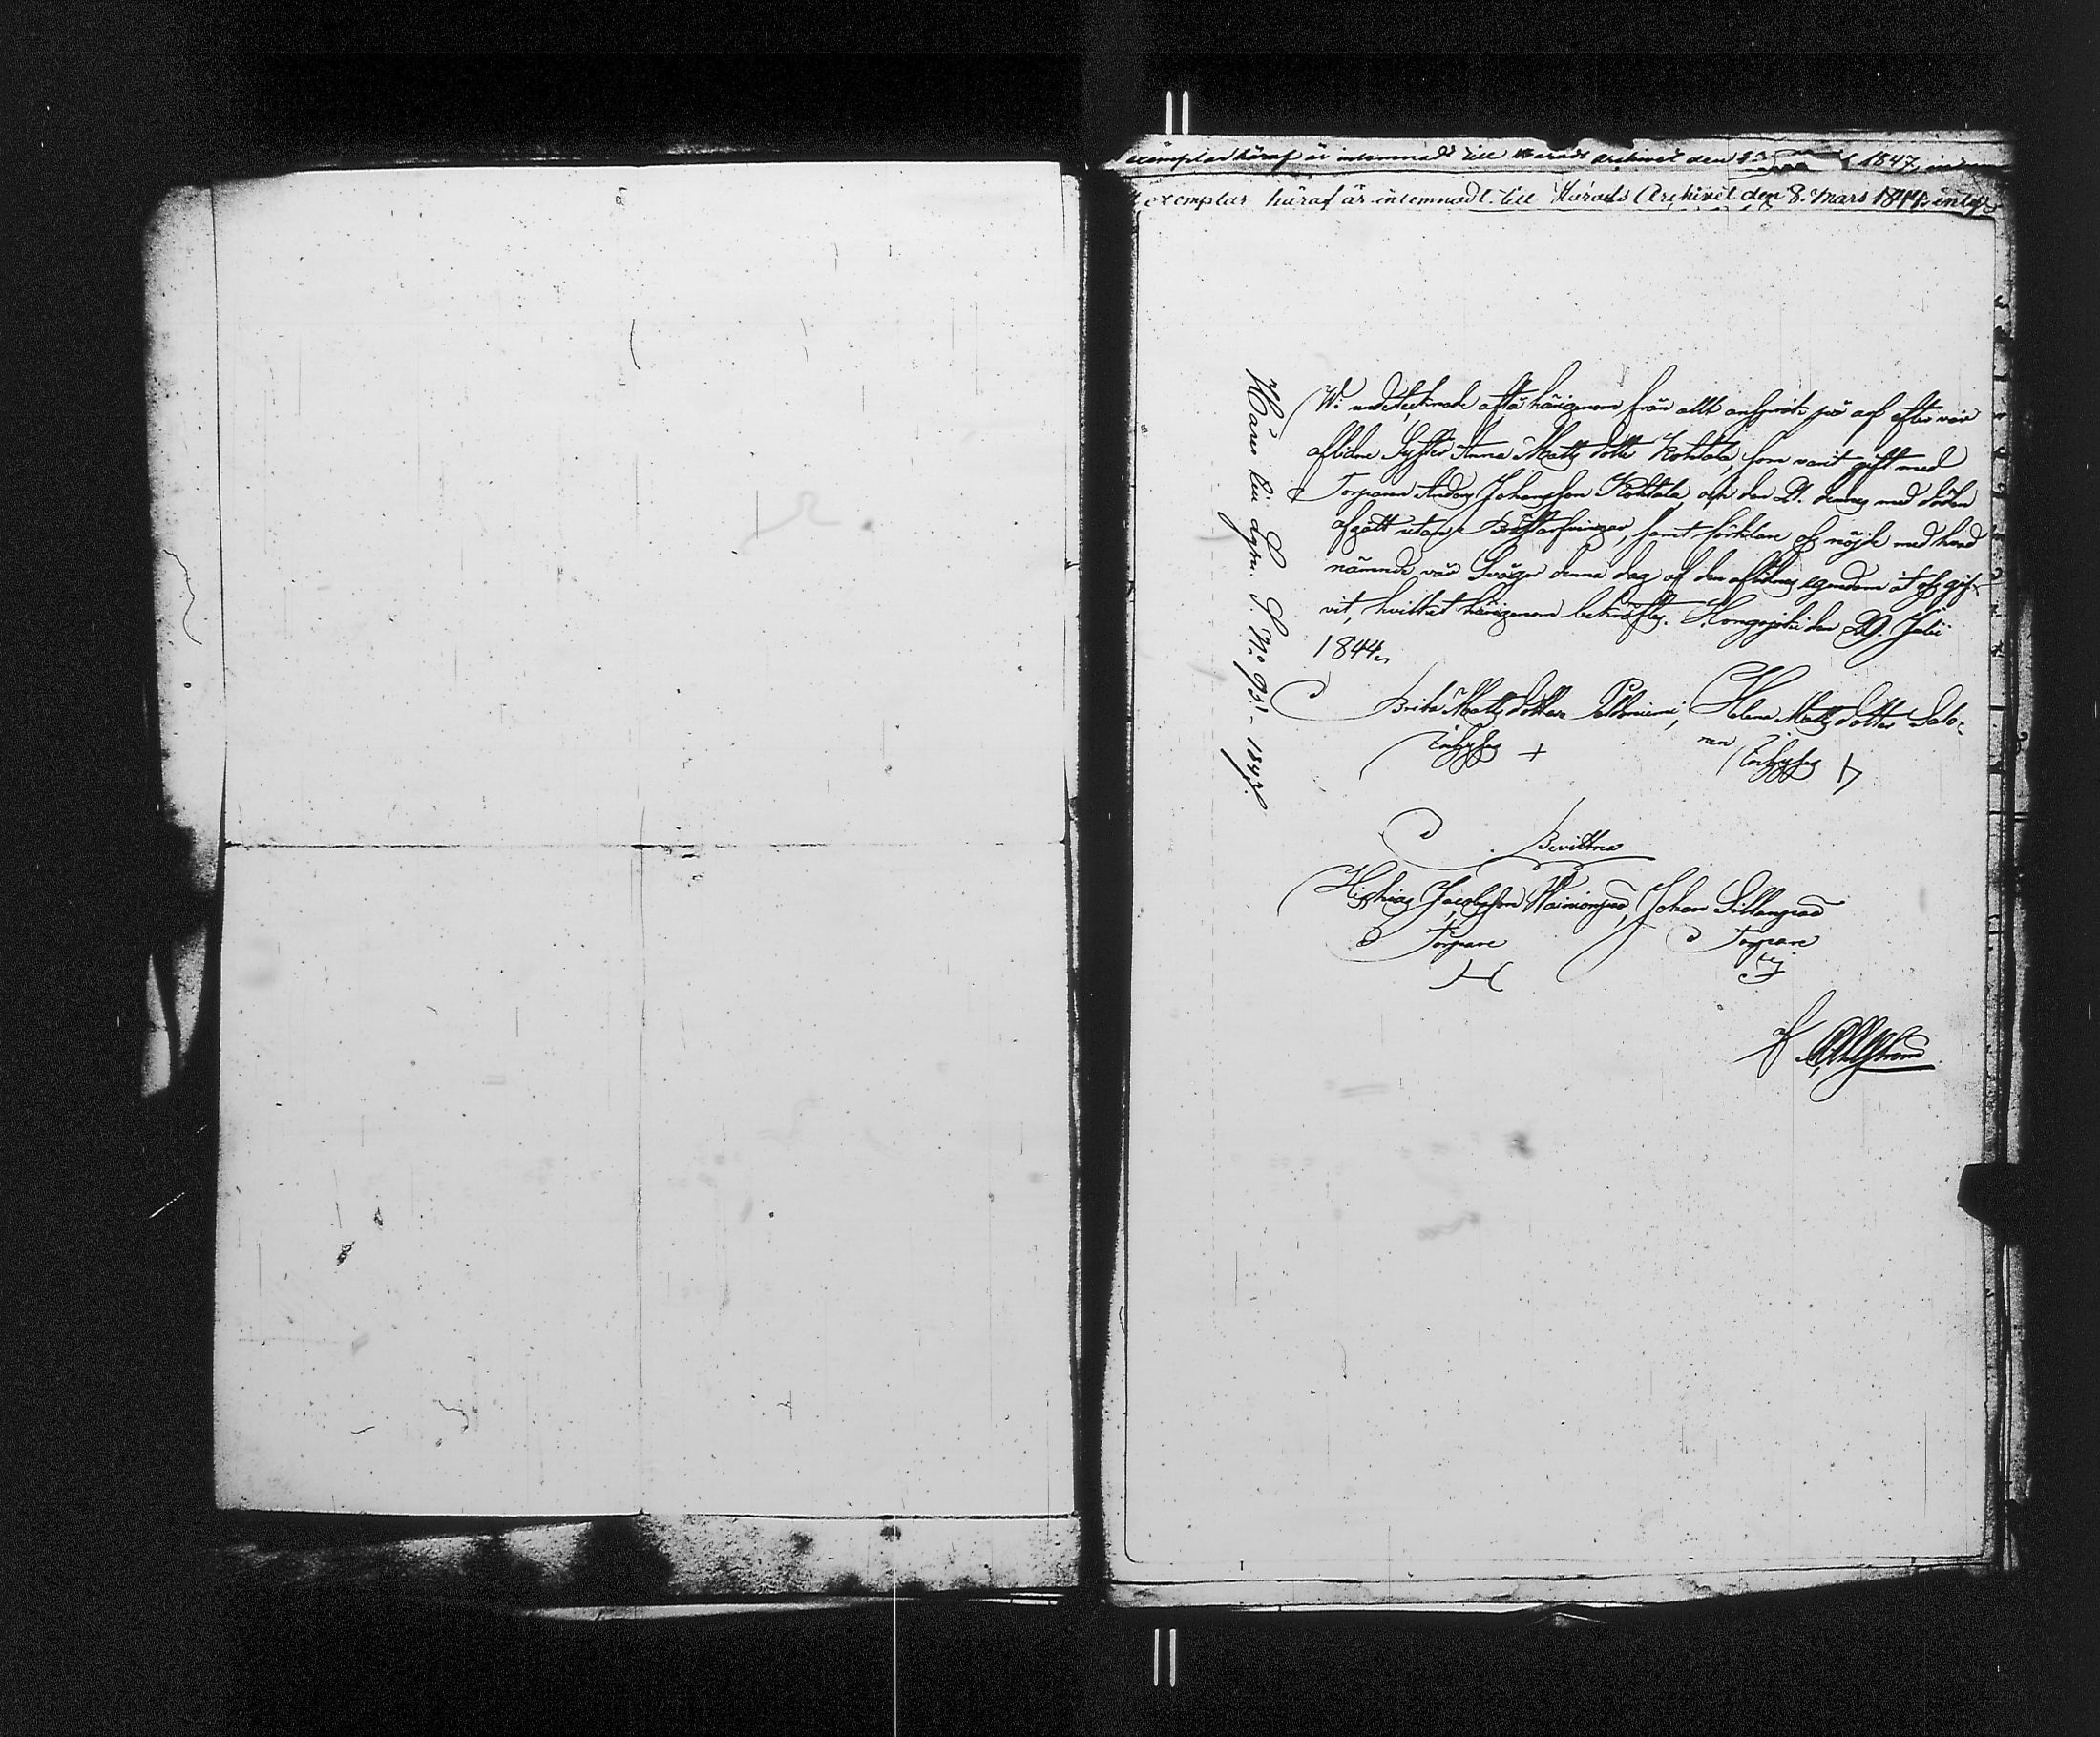 exemplar häraf är inlemnadt till Härads archivet den 1847, in
exemplar häraf är inlemnadt till Härads Archivet den 8. Mars 1847, intyg
Wi undertecknade afstå härigenom från allt anspråk på arf efter vår
aflidne Syster Anna Mattsdotter Kohtala, som varit gift med
Torparen Anders Johansson Kohtala, och den 21. dennes med döden
afgått utan Bröstarfvingar, samt förklare oss nöjde med hvad
nämnde vår Svåger denna dag af den aflidnes egendom åt oss gif-
vit, hvilket härigenom bekräftes. Kongojoki den 29. Julii
1844.
Brita Mattsdotter Peldoniemi, Helena Mattsdotter Salo-
Inhyses + nen Inhyses
Bevittna
Hiskias Jacobsson Wainionpää, Johan Sillanpää
Torpare Torpare
af Ahlstrand
Hörer till Lgfn. S. No 93. 1847.